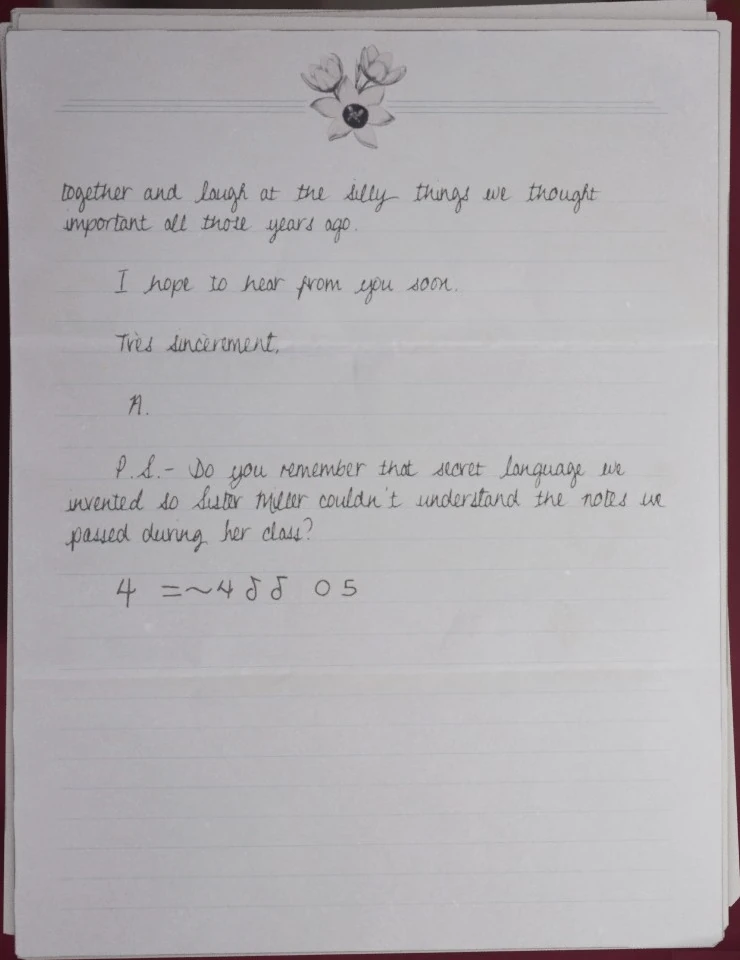 together and laugh at the silly things we thought
important all those years ago.
I hope to hear from you soon.
Très sincèrement,
A.
P.S.- Do you remember that secret language we
invented so Sister Miller couldn't understand the notes we
passed during her class?
4 =~4 δ δ 0 5